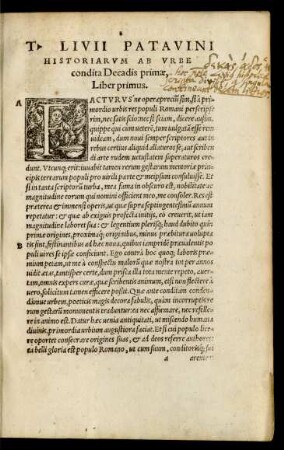 T. LIVII PATAVINI
HISTORIARVM AB VRBE
condita Decadis primæ,
Liber primus.
A
FACTVRVS'ne operæpreciũ sim, si à pri
mordio urbis res populi Romani perscripse
rim, nec satis scio: nec si sciam, dicere ausim.
quippe qui cum uetere, tum uulgatã esse rem
uideam, dum noui semper scriptores aut in
rebus certius aliquid allaturos se, aut scriben
di arte rudem uetustatem superaturos cre
dunt. Vtcunq; erit: iuuabit tamen rerum gestarum memoriæ prin
cipis terrarum populi pro uirili parte & meipsum consuluisse. Et
si in tanta scriptorũ turba, mea fama in obscuro est, nobilitate ac
magnitudine eorum qui nomini officient meo, me consoler. Res est
præterea & immensi operis, ut quæ supra septingentesimũ annum
repetatur: & quæ ab exiguis profecta initijs, eo creuerit, ut iam
magnitudine laboret sua: & legentium plerisq; haud dubito quin
prima origines, proximaq; originibus, minus præbitura uolupta
B
tis sint, festinantibus ad hæc noua, quibus iampridẽ præualentis po
puli uires se ipsæ conficiunt. Ego contrà hoc quoq; laboris præ
mium petam, ut me à conspectu malorũ quæ nostra tot per annos
uidit ætas, tantisper certè, dum prisca illa tota mente repeto, auer
tam, omnis expers curæ, quæ scribentis animum, etsi non flectere à
uero, solicitum tamen efficere possit. Quæ ante conditam conden
damue urbem, poeticis magis decora fabulis, quàm incorruptis re
rum gestarũ monumentis traduntur: ea nec affirmare, nec refelle
re in animo est. Datur hæc uenia antiquitati, ut miscendo humana
diuinis, primordia urbium augustiora faciat. Et si cui populo lice
re oportet consecrare origines suas, & ad deos referre authores:
ea belli gloria est populo Romano, ut cum suum, conditorisq; sui
a